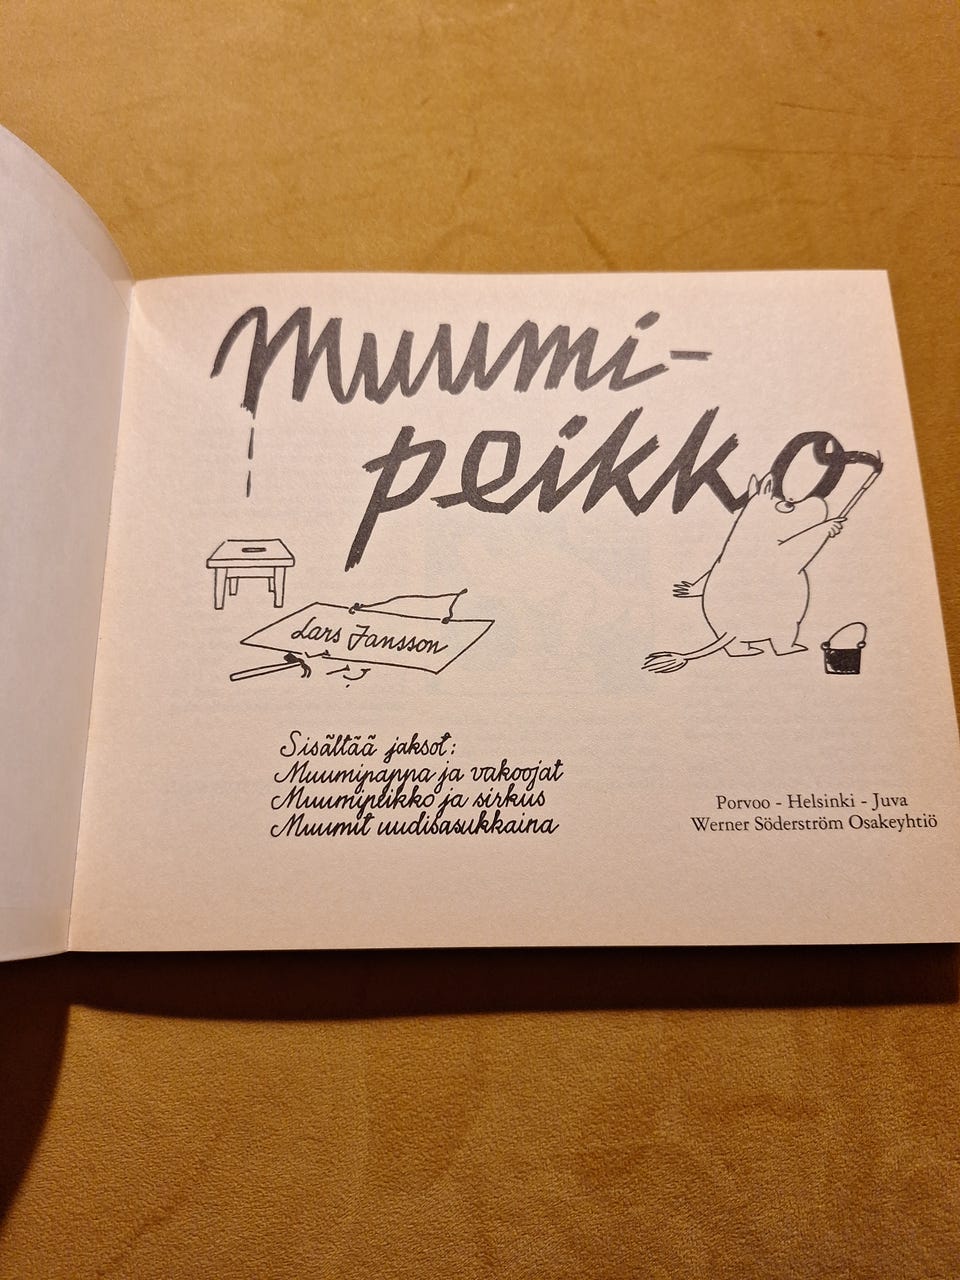 Muumi-
peikko
Lars Jansson
Sisältää jaksot:
Muumipappa ja vakoojat
Muumipeikko ja sirkus
Muumit uudisasukkaina
Porvoo - Helsinki - Juva
Werner Söderström Osakeyhtiö